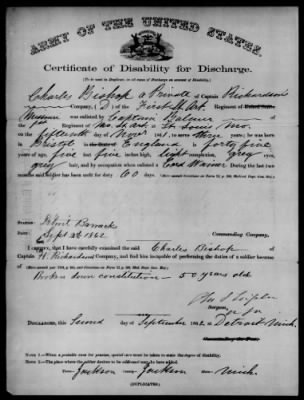 ARMY OF THE UNITED STATES.
Certificate of Disability for Discharge.
Charles Bishop a Private of Captain Richardson
Company, (D) of the First Lt Art. Regiment of United States
Missouri was enlisted by Captain
the Regiment of Mo. Lt. Art. at St. Louis Mo.
on the fifteenth day of Novr 1861, to serve three years; he was born
in Bristol in the State of England is forty five
years of age, five feet five inches high, light complexion, grey eyes,
grey hair, and by occupation when enlisted a . During the last two
months said soldier has been unfit for duty 60 days.
STATION: Detroit Barracks
DATE: Sept 2d 1862
Commanding Company.
I CERTIFY, that I have carefully examined the said Charles Bishop of
Captain H. Richardsons Company, and find him incapable of performing the duties of a soldier because
of
Broken down constitution — 50 years old
Surgeon.
DISCHARGED, this Second day of September 1862, at Detroit Mich.
Commanding the Post.
NOTE 1.—When a probable case for pension, special care must be taken to state the degree of disability.
NOTE 2.—The place where the soldier desires to be addressed may be here added.
Town—Jackson County—Jackson State—Mich.
(DUPLICATES.)